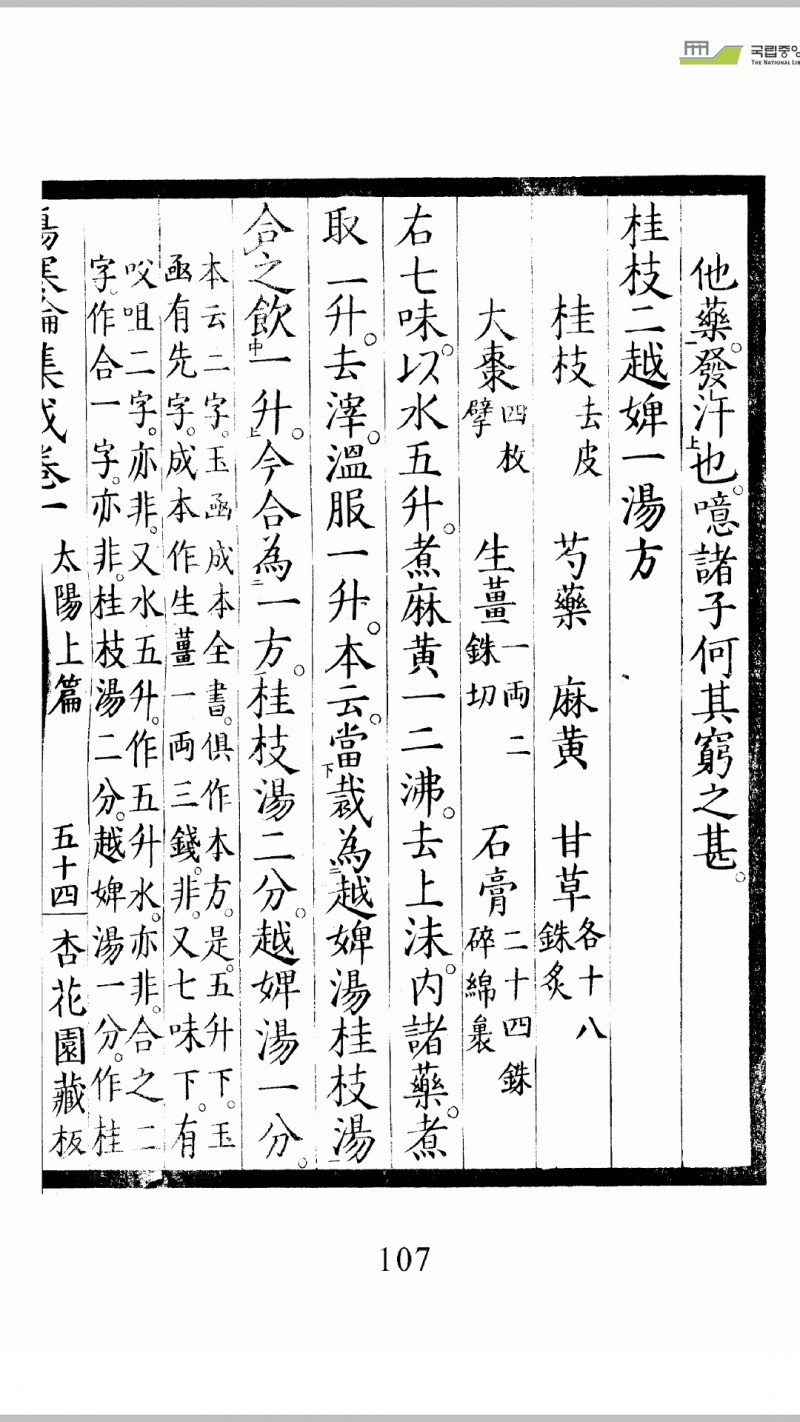 국립중앙
THE NATIONAL LIB
他藥。發汗也。噫諸子何其窮之甚。
桂枝二越婢一湯方
桂枝去皮 芍藥 麻黃 甘草各十八銖炙
大棗四枚擘 生薑一両二銖切 石膏二十四銖碎綿裹
右七味。以水五升。煮麻黃一二沸。去上沫。內諸藥。煮
取一升。去滓。溫服一升。本云。當裁為越婢湯桂枝湯
合之飲一升。今合為一方。桂枝湯二分。越婢湯一分。
本云二字。玉函成本全書。俱作本方。是。五升下。玉
函有先字。成本作生薑一両三錢。非。又七味下。有
㕮咀二字。亦非。又水五升。作五升水。亦非。合之二
字。作合一字。亦非。桂枝湯二分。越婢湯一分。作桂
傷寒論集成卷一 太陽上篇 五十四 杏花園藏板
107